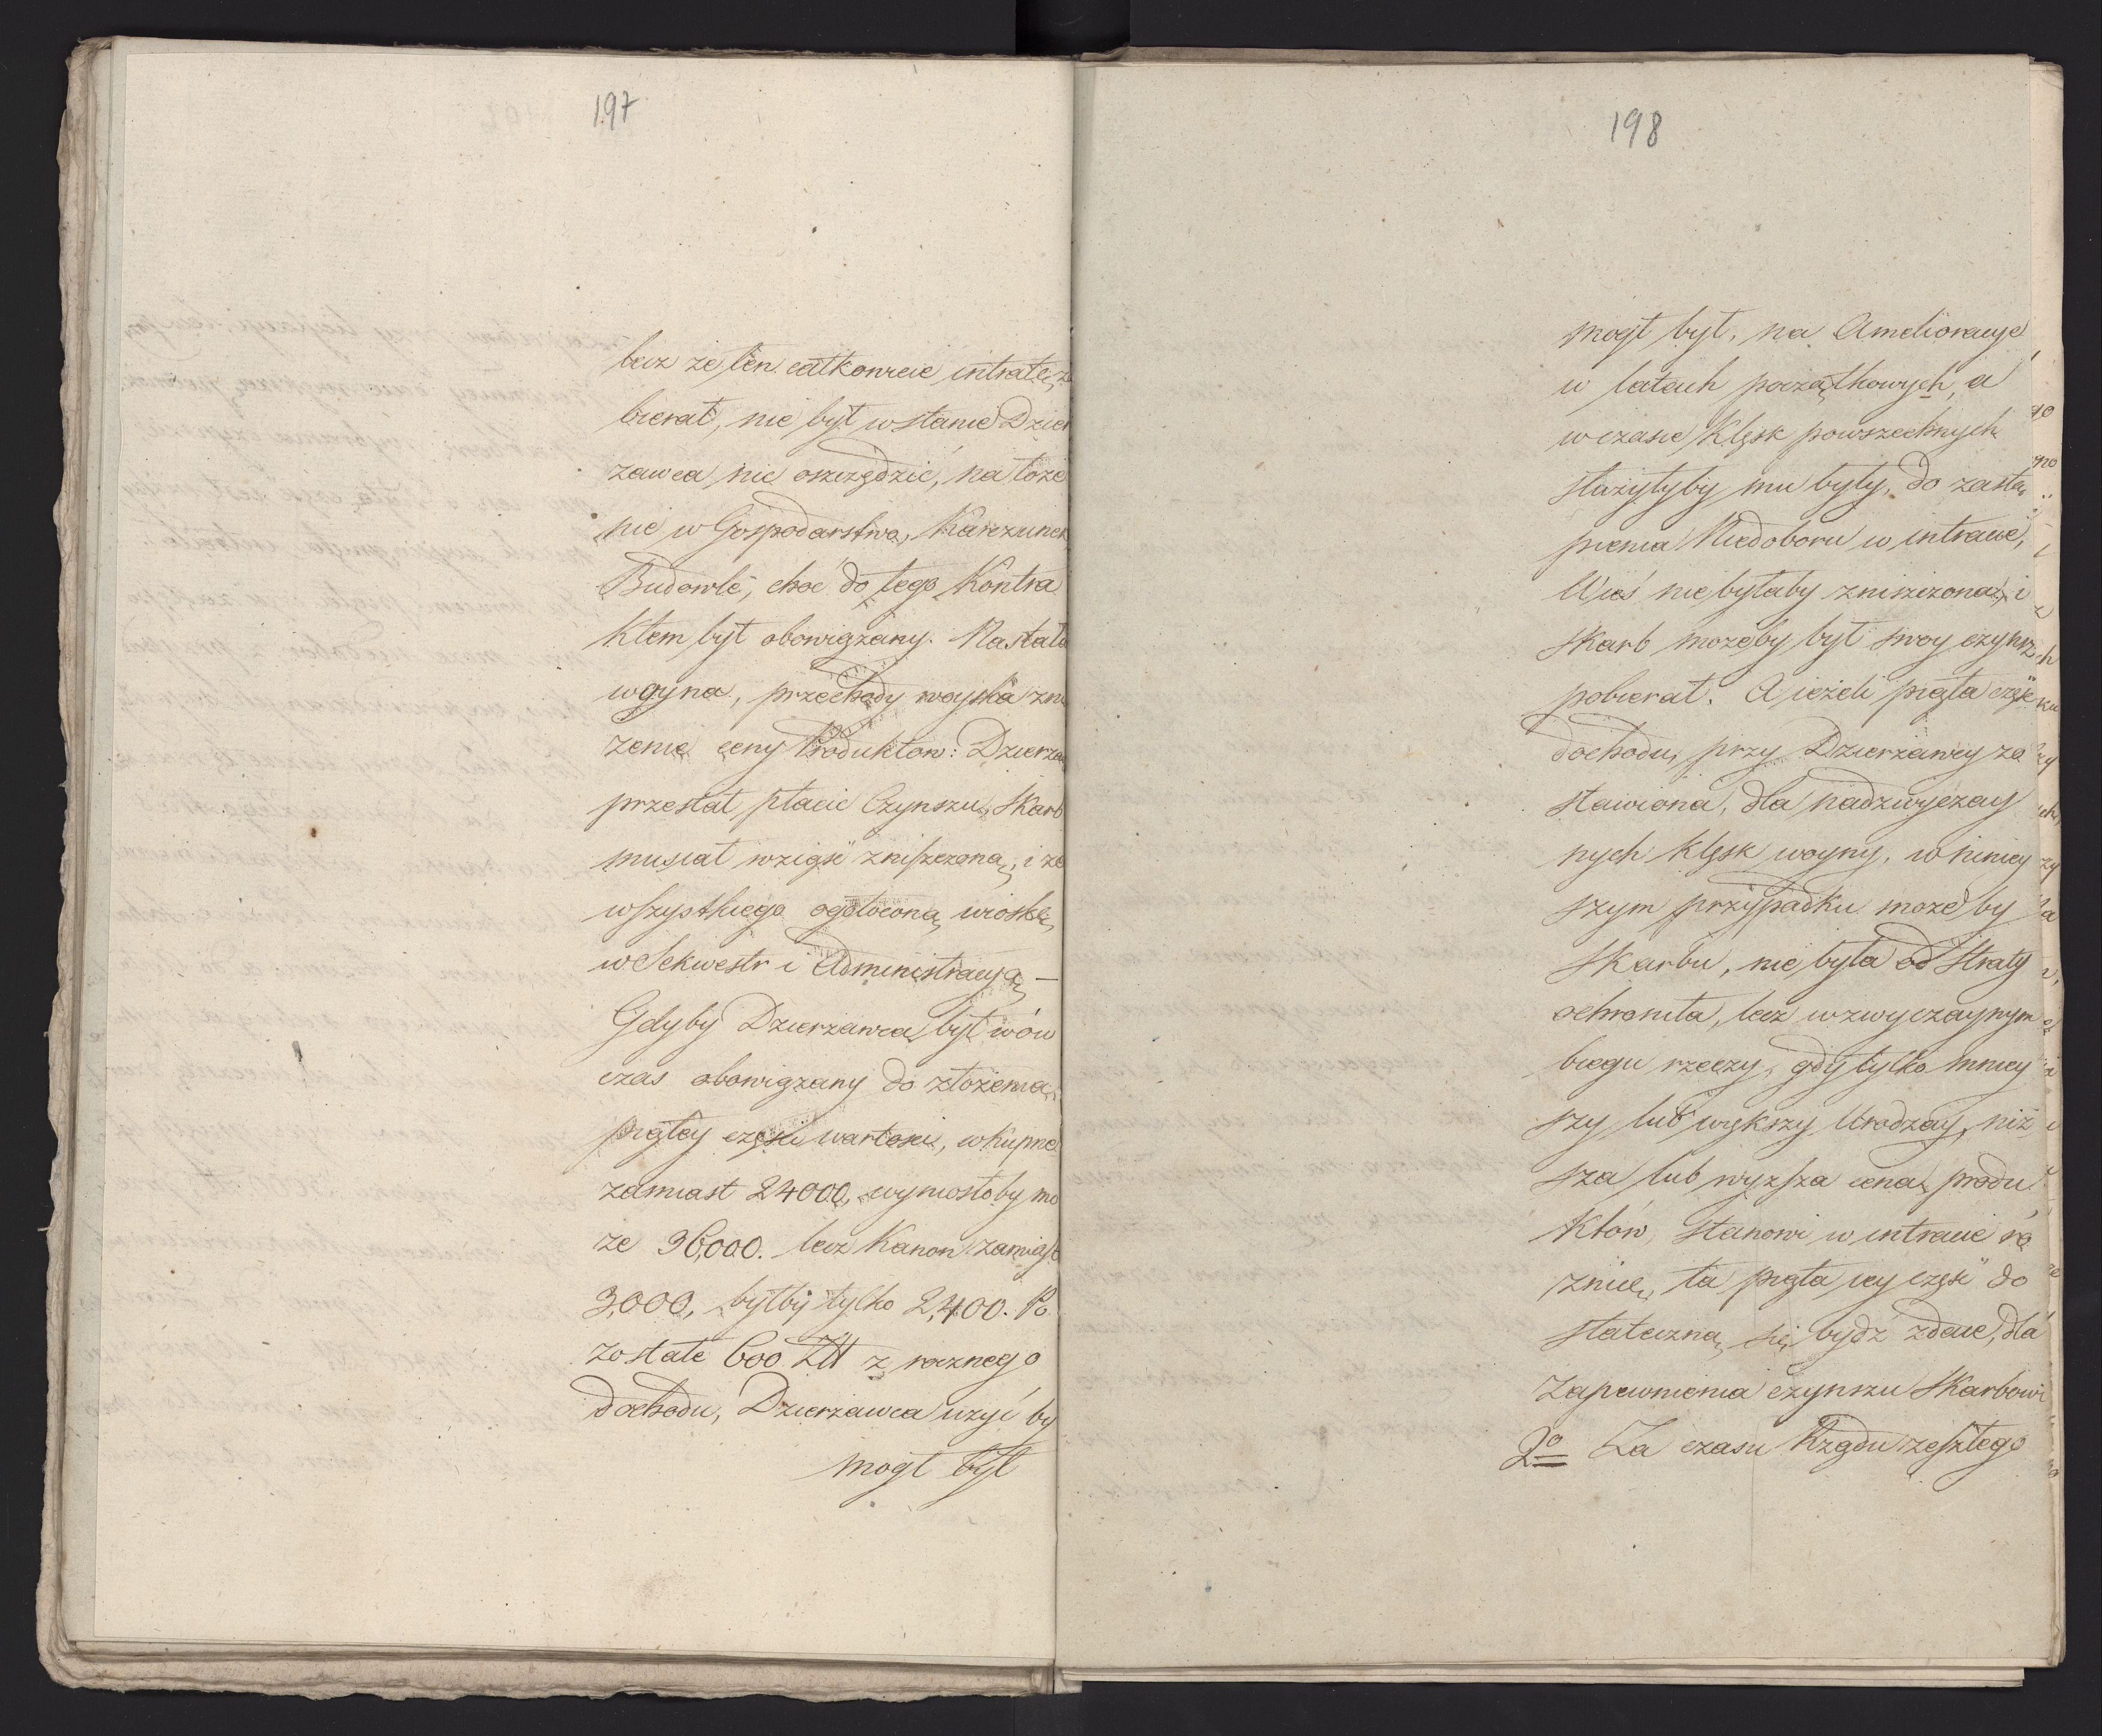 197
lecz że ten całkowcie intratę za
bierał, nie był w stanie Dzier
zawca nic oszczędzić, na łoże
nie w Gospodarstwo, Karczunek
Budowle, choć do tego Kontra
ktem był obowiązany. Nastała
woyna, przechody woyska zni
żenie ceny Produktow: Dzierza
przestał płacić Czynszu, Skarb
musiał wziąść zniszczoną, i ze
wszystkiego ogołoconą wioskę
w Sekwestr i Administracyą —
Gdyby Dzierzawca był wów
czas obowiązany do złożenia
piątey części wartości, wkupne
zamiast 24000, wyniosłoby mo
że 36,000. lecz Kanon zamiast
3,000, byłby tylko 2,400. Po
zostałe 600 Złł z rocznego
dochodu, Dzierzawca użyć by
mogł był
198
mogł był, na Amelioracye
w latach początkowych, a
w czasie Klęsk powszechnych
służyłyby mu były, do zastą
pienia Niedoboru w intracie,
Wieś nie byłaby zniszczona, i
Skarb możeby był swoy czynsz
pobierał. A ieżeli piąta część
dochodu, przy Dzierżawcy zo
stawiona, dla nadzwyczay
nych klęsk woyny, w niniey
szym przypadku może by
Skarbu, nie była od Straty
ochroniła, lecz w zwyczaynym
biegu rzeczy, gdy tylko mniey
szy lub większy Urodzay, niż
sza lub wyższa cena produ
któw, stanowi w intracie ró
żnicę, ta piąta iey część do
stateczną się bydź zdaie, dla
Zapewnienia czynszu Skarbowi
2o Za czasu Rządu zeszłego